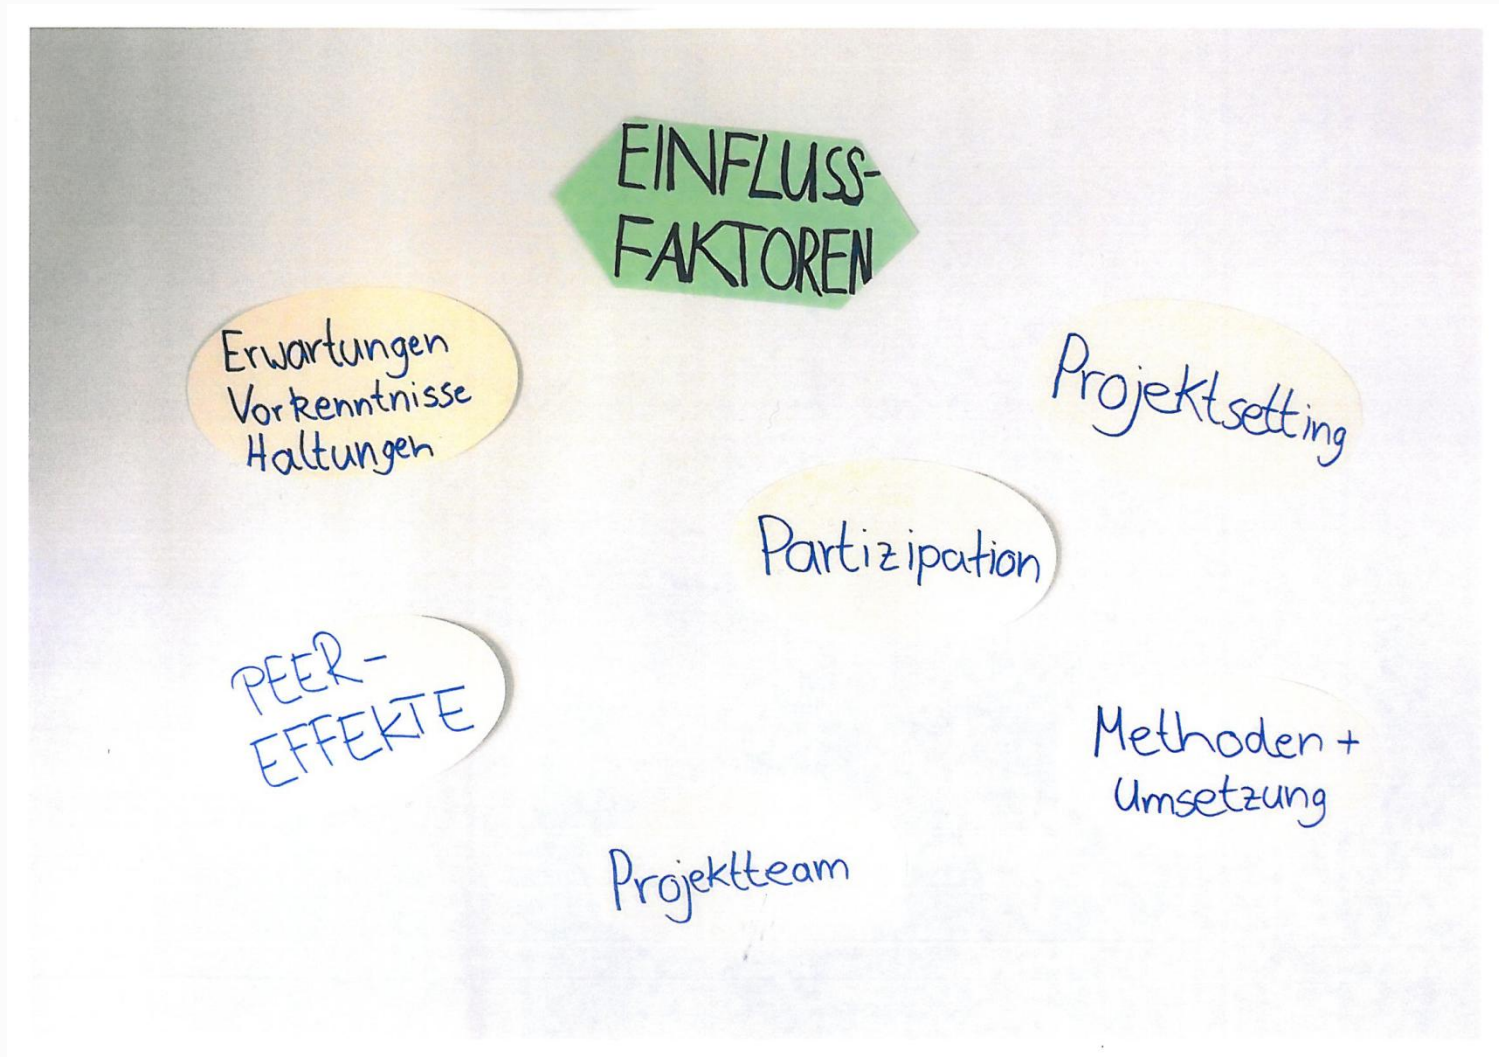 EINFLUSS-
FAKTOREN
Erwartungen
Vorkenntnisse
Haltungen
Projektsetting
Partizipation
PEER-
EFFEKTE
Methoden +
Umsetzung
Projektteam